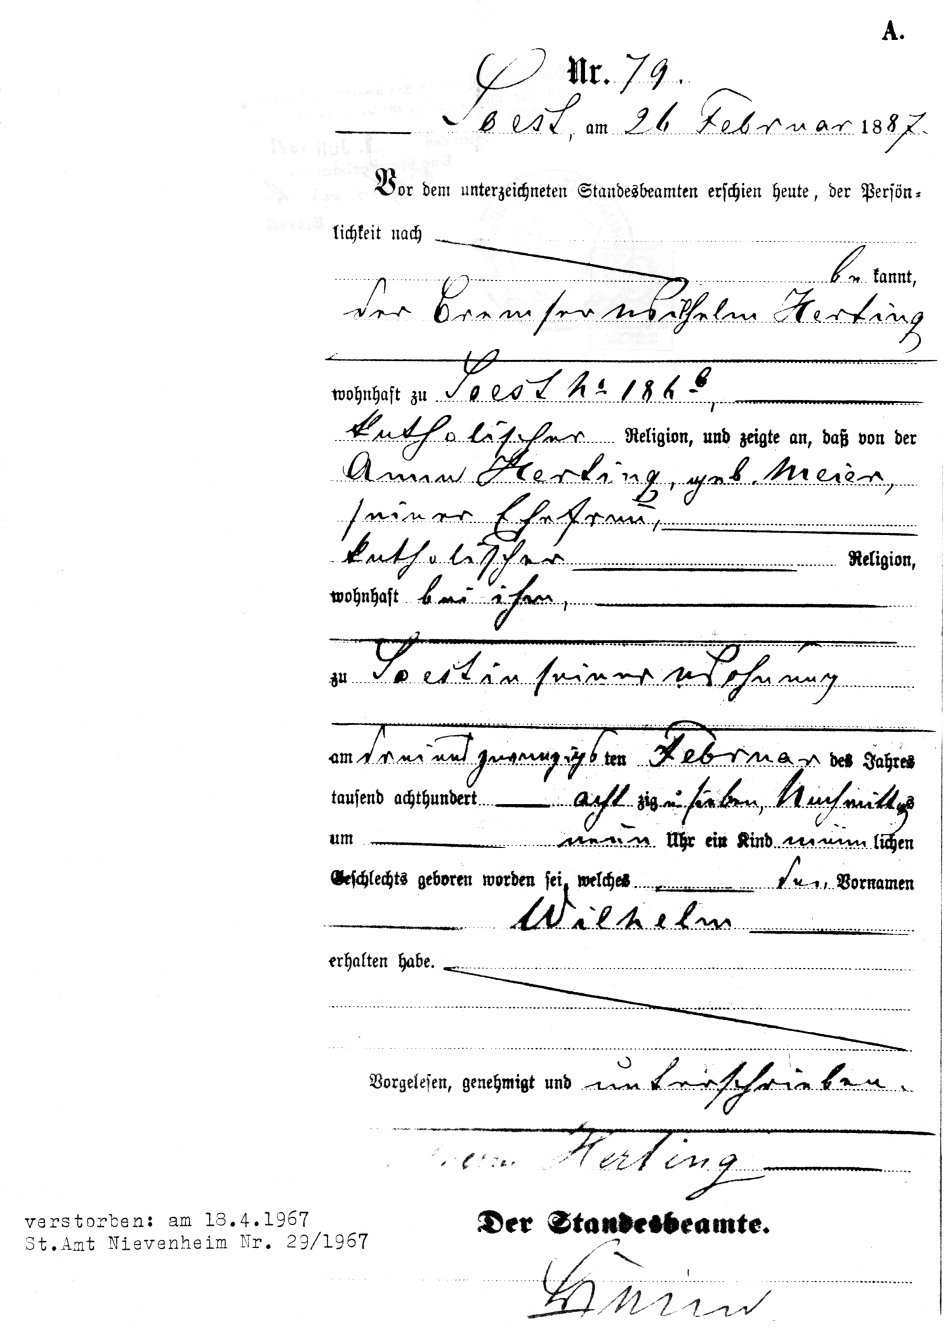 A.
Nr. 79.
Soest, am 26 Februar 1887.
Vor dem unterzeichneten Standesbeamten erschien heute, der Persön-
lichkeit nach
be kannt,
der Bremser Wilhelm Herting
wohnhaft zu Soest No 186 b,
katholischer Religion, und zeigte an, daß von der
Anna Herting, geb. Meier,
seiner Ehefrau,
katholischer Religion,
wohnhaft bei ihm,
zu Soest in seiner Wohnung
am dreiundzwanzigsten Februar des Jahres
tausend achthundert achtzig u sieben, Nachmittags
um neun Uhr ein Kind männlichen
Geschlechts geboren worden sei, welches den Vornamen
Wilhelm
erhalten habe.
Vorgelesen, genehmigt und unterschrieben.
Herting
Der Standesbeamte.
verstorben: am 18.4.1967
St.Amt Nievenheim Nr. 29/1967